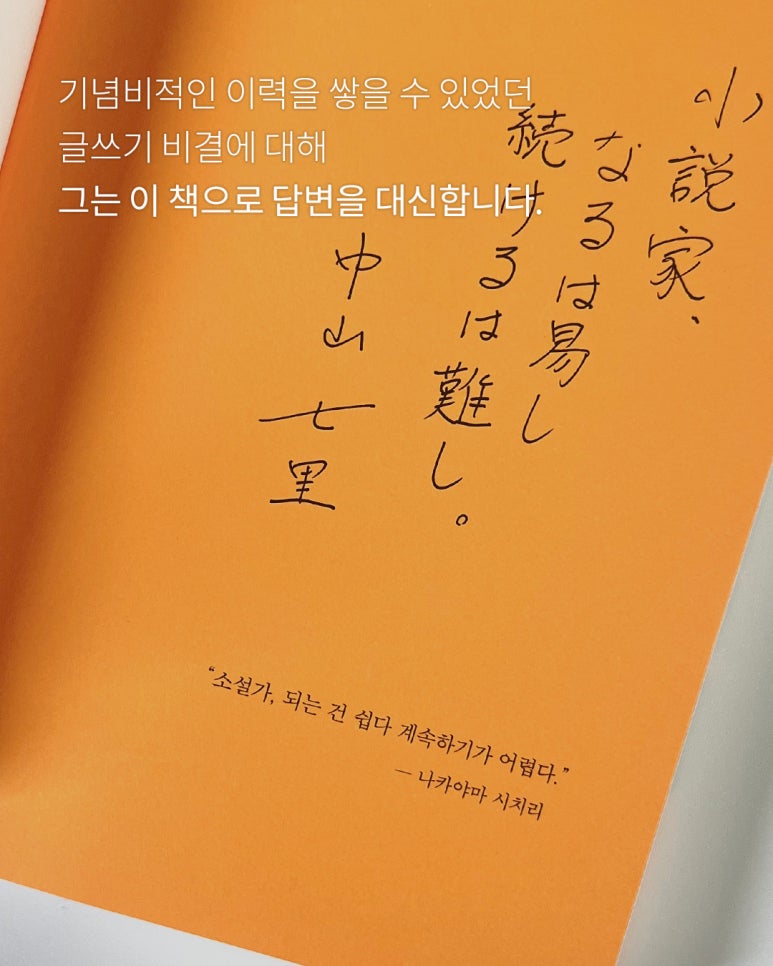 기념비적인 이력을 쌓을 수 있었던
글쓰기 비결에 대해
그는 이 책으로 답변을 대신합니다.
小説家、
なるは易し
続けるは難し。
中山七里
“소설가, 되는 건 쉽다 계속하기가 어렵다.”
— 나카야마 시치리